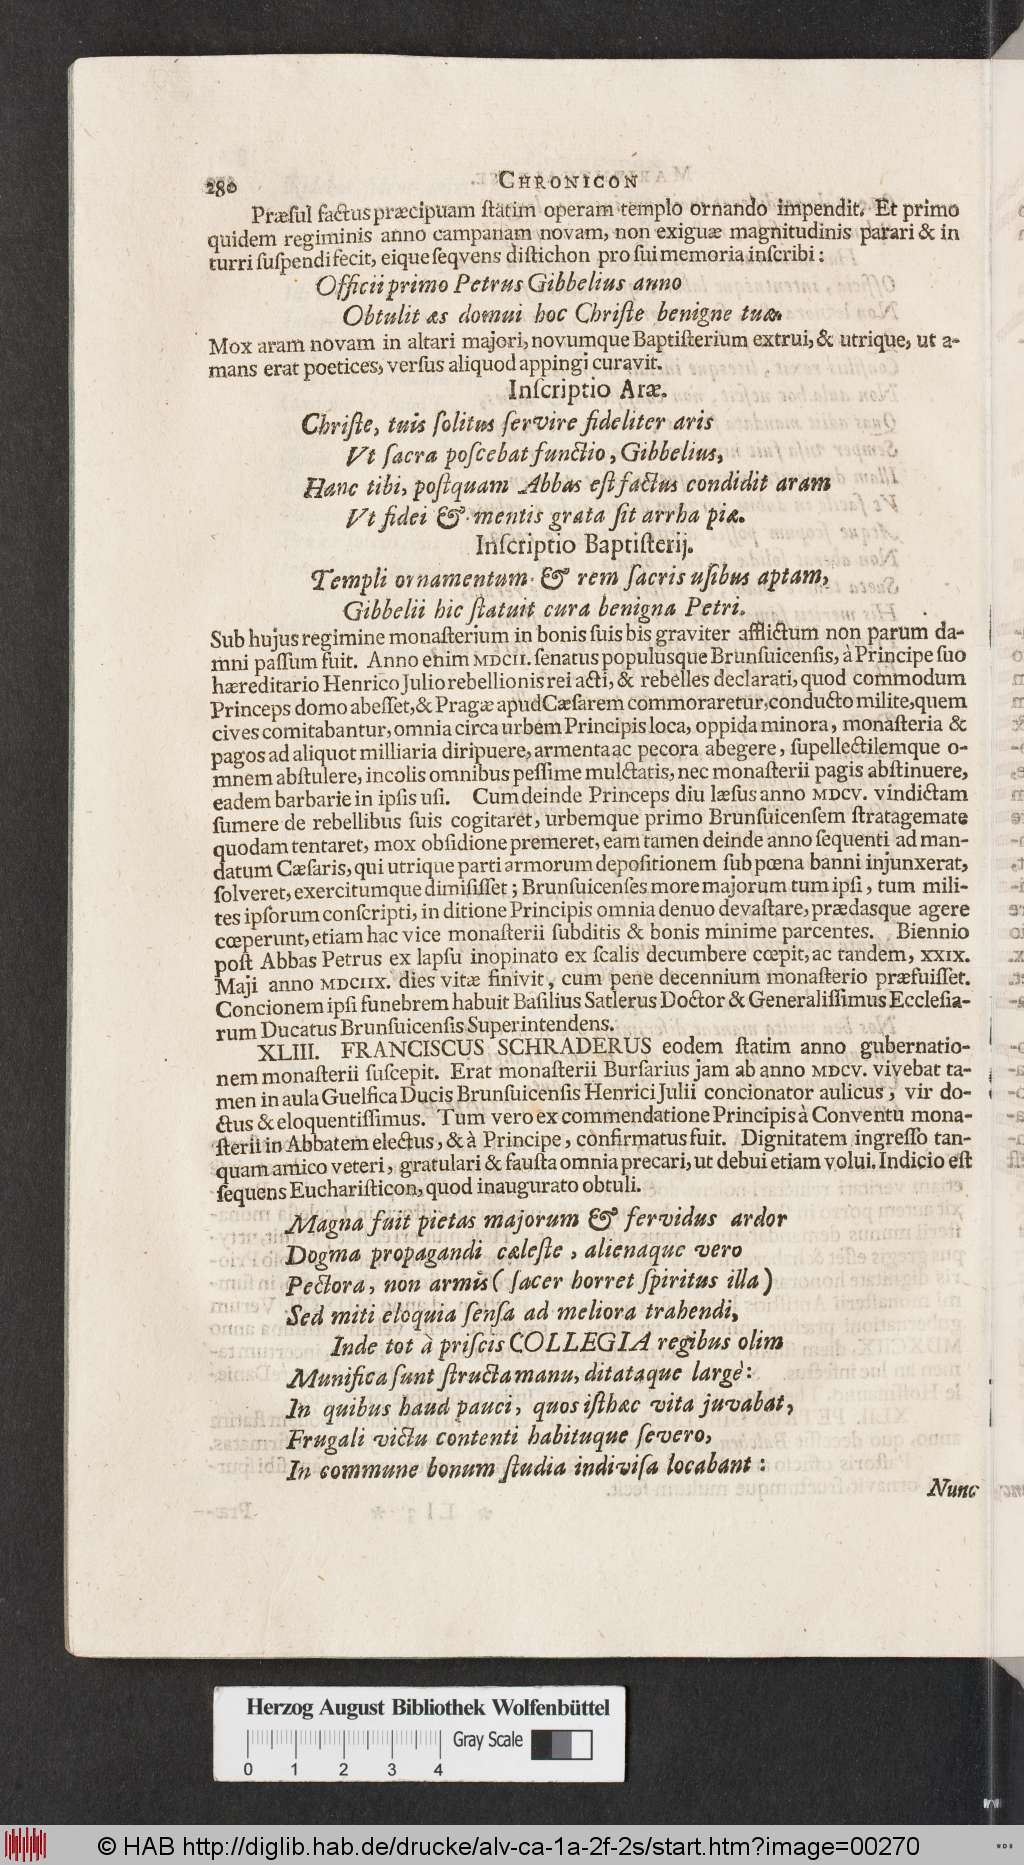 280 CHRONICON
Præſul factus præcipuam ſtatim operam templo ornando impendit. Et primo
quidem regiminis anno campanam novam, non exiguæ magnitudinis parari & in
turri ſuſpendi fecit, eique ſeqvens diſtichon pro ſui memoria inſcribi:
Officii primo Petrus Gibbelius anno
Obtulit æs domui hoc Chriſte benigne tuæ.
Mox aram novam in altari majori, novumque Baptiſterium extrui, & utrique, ut a-
mans erat poetices, verſus aliquod appingi curavit.
Inſcriptio Aræ.
Chriſte, tuis ſolitus ſervire fideliter aris
Vt ſacra poſcebat functio, Gibbelius,
Hanc tibi, poſtquam Abbas eſt factus condidit aram
Vt fidei & mentis grata ſit arrha piæ.
Inſcriptio Baptiſterij.
Templi ornamentum & rem ſacris uſibus aptam,
Gibbelii hic ſtatuit cura benigna Petri.
Sub hujus regimine monaſterium in bonis ſuis bis graviter afflictum non parum da-
mni paſſum fuit. Anno enim MDCII. ſenatus populusque Brunſuicenſis, à Principe ſuo
hæreditario Henrico Julio rebellionis rei acti, & rebelles declarati, quod commodum
Princeps domo abeſſet, & Pragæ apud Cæſarem commoraretur, conducto milite, quem
cives comitabantur, omnia circa urbem Principis loca, oppida minora, monaſteria &
pagos ad aliquot milliaria diripuere, armenta ac pecora abegere, ſupellectilemque o-
mnem abſtulere, incolis omnibus peſſime mulctatis, nec monaſterii pagis abſtinuere,
eadem barbarie in ipſis uſi. Cum deinde Princeps diu læſus anno MDCV. vindictam
ſumere de rebellibus ſuis cogitaret, urbemque primo Brunſuicenſem ſtratagemate
quodam tentaret, mox obſidione premeret, eam tamen deinde anno ſequenti ad man-
datum Cæſaris, qui utrique parti armorum depoſitionem ſub pœna banni injunxerat,
ſolveret, exercitumque dimiſiſſet; Brunſuicenſes more majorum tum ipſi, tum mili-
tes ipſorum conſcripti, in ditione Principis omnia denuo devaſtare, prædasque agere
cœperunt, etiam hac vice monaſterii ſubditis & bonis minime parcentes. Biennio
poſt Abbas Petrus ex lapſu inopinato ex ſcalis decumbere cœpit, ac tandem, XXIX.
Maji anno MDCIIX. dies vitæ finivit, cum pene decennium monaſterio præfuiſſet.
Concionem ipſi funebrem habuit Baſilius Satlerus Doctor & Generaliſſimus Eccleſia-
rum Ducatus Brunſuicenſis Superintendens.
XLIII. FRANCISCUS SCHRADERUS eodem ſtatim anno gubernatio-
nem monaſterii ſuſcepit. Erat monaſterii Burſarius jam ab anno MDCV. vivebat ta-
men in aula Guelfica Ducis Brunſuicenſis Henrici Julii concionator aulicus, vir do-
ctus & eloquentiſſimus. Tum vero ex commendatione Principis à Conventu mona-
ſterii in Abbatem electus, & à Principe, confirmatus fuit. Dignitatem ingreſſo tan-
quam amico veteri, gratulari & fauſta omnia precari, ut debui etiam volui. Indicio eſt
ſequens Euchariſticon, quod inaugurato obtuli.
Magna fuit pietas majorum & fervidus ardor
Dogma propagandi cæleſte, alienaque vero
Pectora, non armis (ſacer horret ſpiritus illa)
Sed miti eloquia ſenſa ad meliora trahendi,
Inde tot à priſcis COLLEGIA regibus olim
Munifica ſunt ſtructa manu, ditataque largè:
In quibus haud pauci, quos iſthæc vita juvabat,
Frugali victu contenti habituque ſevero,
In commune bonum ſtudia indiviſa locabant:
Nunc
Herzog August Bibliothek Wolfenbüttel
Gray Scale
0 1 2 3 4
© HAB http://diglib.hab.de/drucke/alv-ca-1a-2f-2s/start.htm?image=00270